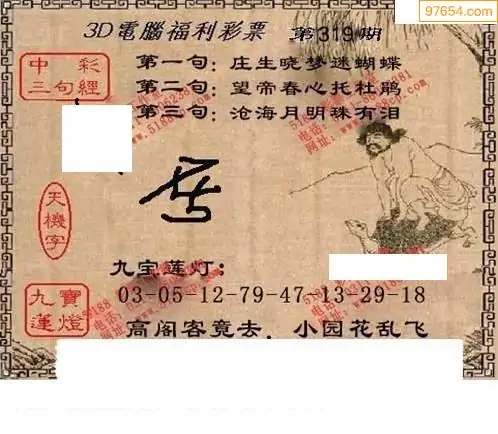 97654.com
3D電腦福利彩票 第319期
中彩
三句經
第一句：庄生晓梦迷蝴蝶
第二句：望帝春心托杜鹃
第三句：沧海月明珠有泪
天機字
九宝莲灯：
九寶
蓮燈
03-05-12-79-47-13-29-18
高阁客竟去﹐小园花乱飞